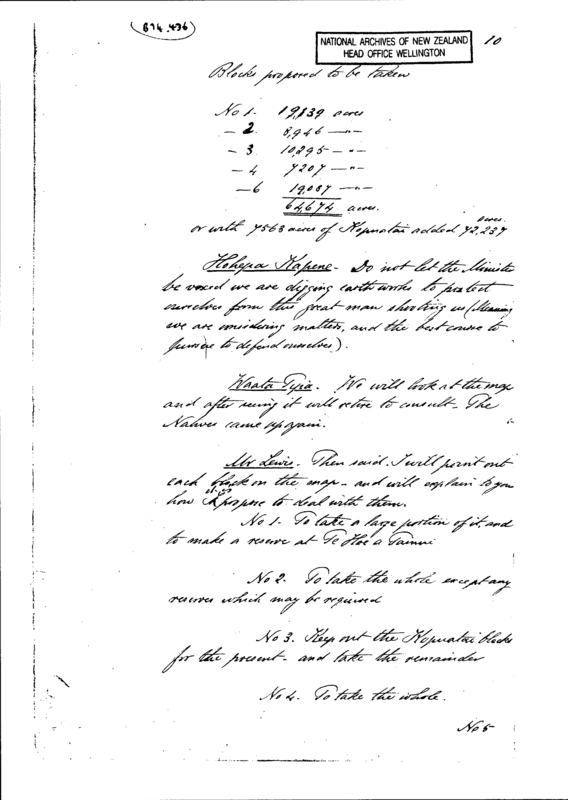 (674.436)
NATIONAL ARCHIVES OF NEW ZEALAND
HEAD OFFICE WELLINGTON
10
Blocks proposed to be taken
No 1. 19,139 acres
— 2. 8,946 — " —
— 3. 10,295 — " —
— 4 7207 — " —
— 6 19,087 — " —
64,674 acres.
or with 7563 acres of Kopuatai added 72,237 acres.
Hohepa Kapene - Do not let the Minister
be vexed we are digging earthworks to protect
ourselves from this great man shooting us (Meaning
we are considering matters, and the best course to
pursue to defend ourselves).
Waata Tipa. We will look at the map
and after seeing it will retire to consult - The
Natives came up again.
Mr Lewis. Then said. I will point out
each block on the map - and will explain to you
how propose to deal with them.
No 1. To take a large portion of it, and
to make a reserve at Te Hoe a Tainui
No 2. To take the whole except any
reserves which may be required
No 3. Keep out the Kopuatai blocks
for the present - and take the remainder
No 4. To take the whole.
No 5